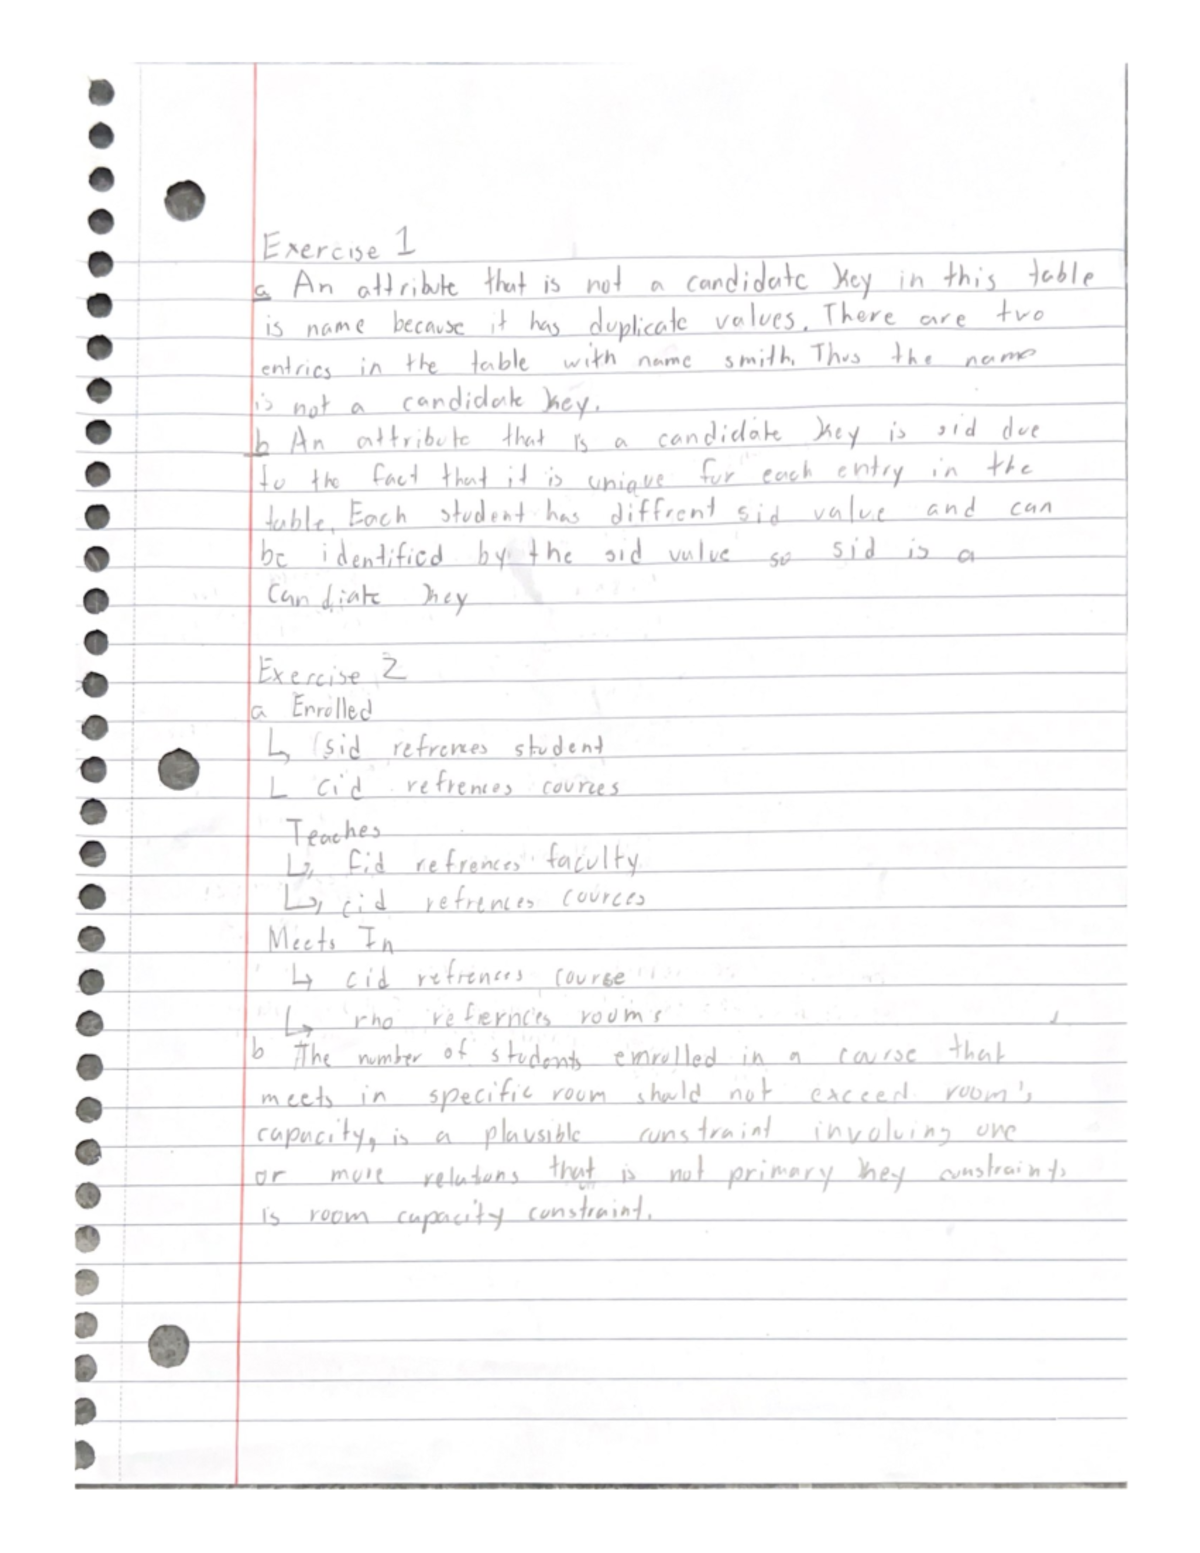 Exercise 1
a An attribute that is not a candidate key in this table
is name because it has duplicate values. There are two
entries in the table with name smith. Thus the name
is not a candidate key.
b An attribute that is a candidate key is sid due
to the fact that it is unique for each entry in the
table. Each student has diffrent sid value and can
be identified by the sid value so sid is a
Candiate key
Exercise 2
a Enrolled
↳ sid refrences student
L cid refrences cources
Teaches
↳ fid refrences faculty
↳ cid refrences cources
Meets In
↳ cid refrences course
↳ rno refernces rooms
b The number of students enrolled in a course that
meets in specific room should not exceed room's
capacity, is a plausible constraint involving one
or more relations that is not primary key constraints
is room capacity constraint.